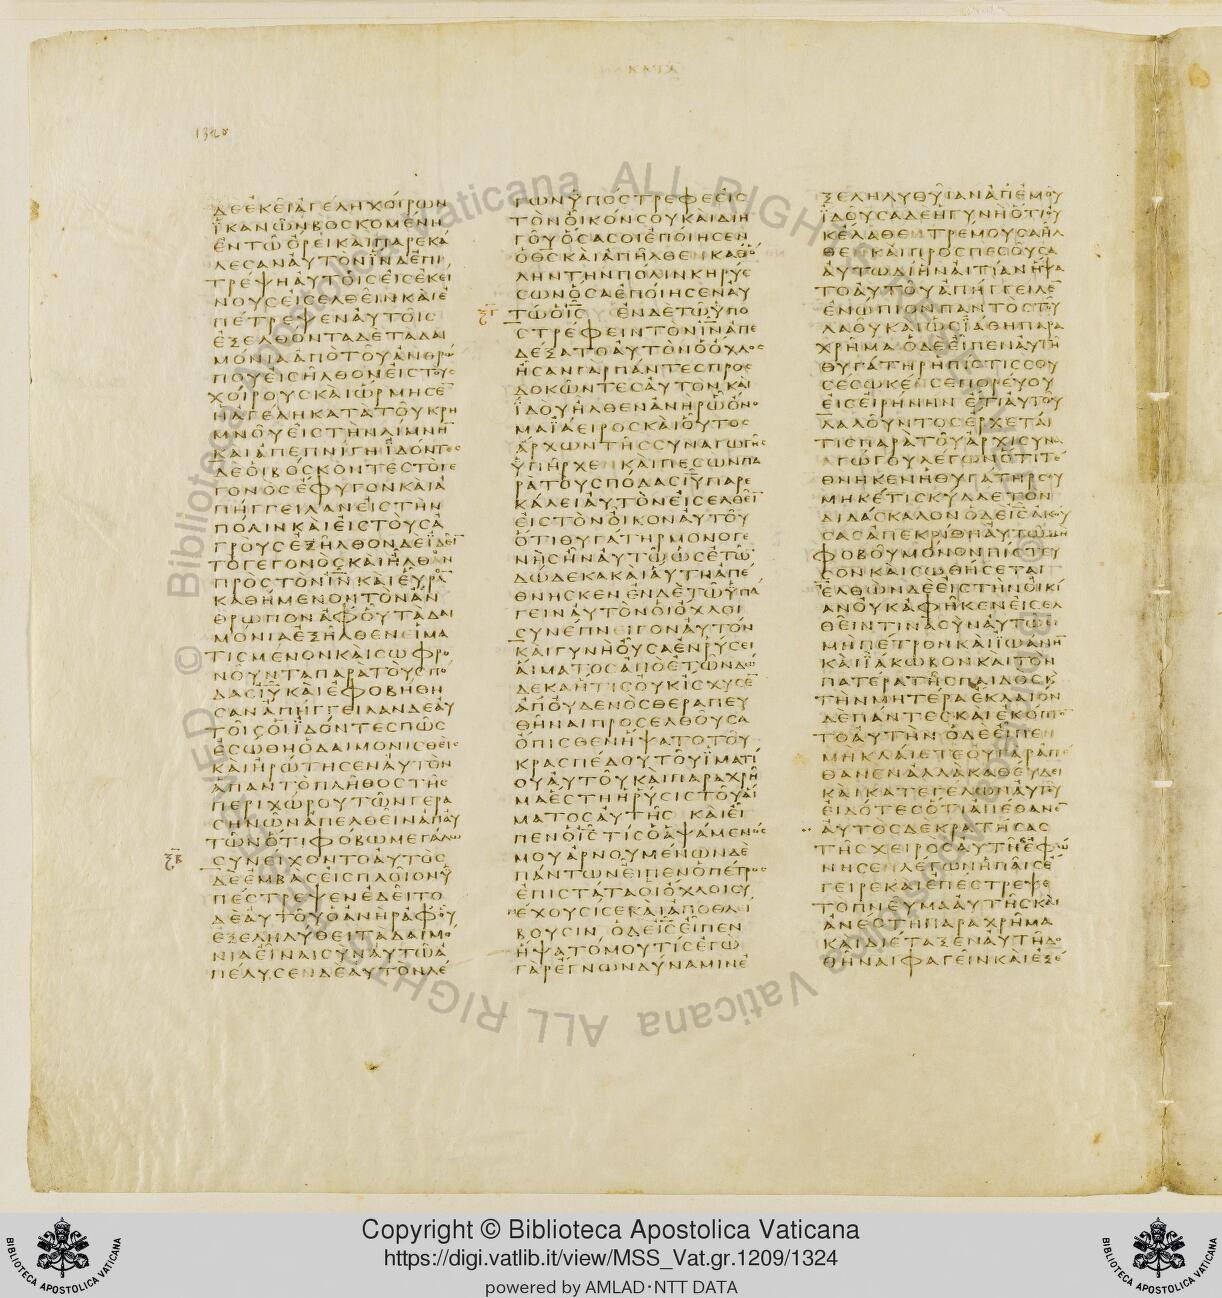 ΚΑΤΑ
ΔΕΕΚΕΙΑΓΕΛΗΧΟΙΡΩΝ
ΪΚΑΝΩΝΒΟΣΚΟΜΕΝΗ
ΕΝΤΩΟΡΕΙΚΑΙΠΑΡΕΚΑ
ΛΕΣΑΝΑΥΤΟΝΙΝΑΕΠΙ
ΤΡΕΨΗΑΥΤΟΙΣΕΙΣΕΚΕΙ
ΝΟΥΣΕΙΣΕΛΘΕΙΝΚΑΙΕ
ΠΕΤΡΕΨΕΝΑΥΤΟΙΣ
ΕΞΕΛΘΟΝΤΑΔΕΤΑΔΑΙ
ΜΟΝΙΑΑΠΟΤΟΥΑΝΘΡΩ
ΠΟΥΕΙΣΗΛΘΟΝΕΙΣΤΟΥΣ
ΧΟΙΡΟΥΣΚΑΙΩΡΜΗΣΕ̅
ΗΑΓΕΛΗΚΑΤΑΤΟΥΚΡΗ
ΜΝΟΥΕΙΣΤΗΝΛΙΜΝΗ̅
ΚΑΙΑΠΕΠΝΙΓΗΪΔΟΝΤΕΣ
ΔΕΟΙΒΟΣΚΟΝΤΕΣΤΟΓΕ
ΓΟΝΟΣΕΦΥΓΟΝΚΑΙΑ
ΠΗΓΓΕΙΛΑΝΕΙΣΤΗΝ
ΠΟΛΙΝΚΑΙΕΙΣΤΟΥΣΑ
ΓΡΟΥΣΕΞΗΛΘΟΝΔΕΪΔΕΙ̅
ΤΟΓΕΓΟΝΟΣΚΑΙΗΛΘΑΝ
ΠΡΟΣΤΟΝΙ̅Ν̅ΚΑΙΕΥΡΑ̅
ΚΑΘΗΜΕΝΟΝΤΟΝΑΝ
ΘΡΩΠΟΝΑΦΟΥΤΑΔΑΙ
ΜΟΝΙΑΕΞΗΛΘΕΝΕΙΜΑ
ΤΙΣΜΕΝΟΝΚΑΙΣΩΦΡΟ
ΝΟΥΝΤΑΠΑΡΑΤΟΥΣΠΟ
ΔΑΣΙ̅Υ̅ΚΑΙΕΦΟΒΗΘΗ
ΣΑΝΑΠΗΓΓΕΙΛΑΝΔΕΑΥ
ΤΟΙΣΟΙΪΔΟΝΤΕΣΠΩΣ
ΕΣΩΘΗΟΔΑΙΜΟΝΙΣΘΕΙΣ
ΚΑΙΗΡΩΤΗΣΕΝΑΥΤΟΝ
ΑΠΑΝΤΟΠΛΗΘΟΣΤΗΣ
ΠΕΡΙΧΩΡΟΥΤΩΝΓΕΡΑ
ΣΗΝΩΝΑΠΕΛΘΕΙΝΑΠΑΥ
ΤΩΝΟΤΙΦΟΒΩΜΕΓΑΛΩ
ΣΥΝΕΙΧΟΝΤΟΑΥΤΟΣ
ΔΕΕΜΒΑΣΕΙΣΠΛΟΙΟΝΫ
ΠΕΣΤΡΕΨΕΝΕΔΕΙΤΟ
ΔΕΑΥΤΟΥΟΑΝΗΡΑΦΟΥ
ΕΞΕΛΗΛΥΘΕΙΤΑΔΑΙΜΟ
ΝΙΑΕΙΝΑΙΣΥΝΑΥΤΩΑ
ΠΕΛΥΣΕΝΔΕΑΥΤΟΝΛΕ
ΓΩΝΫΠΟΣΤΡΕΦΕΕΙΣ
ΤΟΝΟΙΚΟΝΣΟΥΚΑΙΔΙΗ
ΓΟΥΟΣΑΣΟΙΕΠΟΙΗΣΕΝ
ΟΘ̅Σ̅ΚΑΙΑΠΗΛΘΕΝΚΑΘΟ
ΛΗΝΤΗΝΠΟΛΙΝΚΗΡΥΣ
ΣΩΝΟΣΑΕΠΟΙΗΣΕΝΑΥ
ΤΩΟΙ̅Σ̅ ΕΝΔΕΤΩΫΠΟ
ΣΤΡΕΦΕΙΝΤΟΝΙ̅Ν̅ΑΠΕ
ΔΕΞΑΤΟΑΥΤΟΝΟΟΧΛΟΣ
ΗΣΑΝΓΑΡΠΑΝΤΕΣΠΡΟΣ
ΔΟΚΩΝΤΕΣΑΥΤΟΝΚΑΙ
ΪΔΟΥΗΛΘΕΝΑΝΗΡΩΟΝΟ
ΜΑΪΑΕΙΡΟΣΚΑΙΟΥΤΟΣ
ΑΡΧΩΝΤΗΣΣΥΝΑΓΩΓΗΣ
ΫΠΗΡΧΕΝΚΑΙΠΕΣΩΝΠΑ
ΡΑΤΟΥΣΠΟΔΑΣΙ̅Υ̅ΠΑΡΕ
ΚΑΛΕΙΑΥΤΟΝΕΙΣΕΛΘΕΙ̅
ΕΙΣΤΟΝΟΙΚΟΝΑΥΤΟΥ
ΟΤΙΘΥΓΑΤΗΡΜΟΝΟΓΕ
ΝΗΣΗΝΑΥΤΩΩΣΕΤΩ̅
ΔΩΔΕΚΑΚΑΙΑΥΤΗΑΠΕ
ΘΝΗΣΚΕΝΕΝΔΕΤΩΫΠΑ
ΓΕΙΝΑΥΤΟΝΟΙΟΧΛΟΙ
ΣΥΝΕΠΝΕΙΓΟΝΑΥΤΟΝ
ΚΑΙΓΥΝΗΟΥΣΑΕΝΡΥΣΕΙ
ΑΙΜΑΤΟΣΑΠΟΕΤΩΝΔΩ
ΔΕΚΑΗΤΙΣΟΥΚΙΣΧΥΣΕ̅
ΑΠΟΥΔΕΝΟΣΘΕΡΑΠΕΥ
ΘΗΝΑΙΠΡΟΣΕΛΘΟΥΣΑ
ΟΠΙΣΘΕΝΗΨΑΤΟΤΟΥ
ΚΡΑΣΠΕΔΟΥΤΟΥΪΜΑΤΙ
ΟΥΑΥΤΟΥΚΑΙΠΑΡΑΧΡΗ
ΜΑΕΣΤΗΗΡΥΣΙΣΤΟΥΑΙ
ΜΑΤΟΣΑΥΤΗΣ ΚΑΙΕΙ
ΠΕΝΟΙ̅Σ̅ΤΙΣΟΑΨΑΜΕΝΟΣ
ΜΟΥΑΡΝΟΥΜΕΝΩΝΔΕ
ΠΑΝΤΩΝΕΙΠΕΝΟΠΕΤΡΟΣ
ΕΠΙΣΤΑΤΑΟΙΟΧΛΟΙΣΥ
ΝΕΧΟΥΣΙΣΕΚΑΙΑΠΟΘΛΙ
ΒΟΥΣΙΝΟΔΕΙ̅Σ̅ΕΙΠΕΝ
ΗΨΑΤΟΜΟΥΤΙΣΕΓΩ
ΓΑΡΕΓΝΩΝΔΥΝΑΜΙΝΕ
ΞΕΛΗΛΥΘΥΙΑΝΑΠΕΜΟΥ
ΪΔΟΥΣΑΔΕΗΓΥΝΗΟΤΙΟΥ
ΚΕΛΑΘΕΝΤΡΕΜΟΥΣΑΗΛ
ΘΕΝΚΑΙΠΡΟΣΠΕΣΟΥΣΑ
ΑΥΤΩΔΙΗΝΑΙΤΙΑΝΗΨΑ
ΤΟΑΥΤΟΥΑΠΗΓΓΕΙΛΕ̅
ΕΝΩΠΙΟΝΠΑΝΤΟΣΤΟΥ
ΛΑΟΥΚΑΙΩΣΪΑΘΗΠΑΡΑ
ΧΡΗΜΑΟΔΕΕΙΠΕΝΑΥΤΗ
ΘΥΓΑΤΗΡΗΠΙΣΤΙΣΣΟΥ
ΣΕΣΩΚΕΝΣΕΠΟΡΕΥΟΥ
ΕΙΣΕΙΡΗΝΗΝ ΕΤΙΑΥΤΟΥ
ΛΑΛΟΥΝΤΟΣΕΡΧΕΤΑΙ
ΤΙΣΠΑΡΑΤΟΥΑΡΧΙΣΥΝΑ
ΓΩΓΟΥΛΕΓΩΝΟΤΙΤΕ
ΘΝΗΚΕΝΗΘΥΓΑΤΗΡΣΟΥ
ΜΗΚΕΤΙΣΚΥΛΛΕΤΟΝ
ΔΙΔΑΣΚΑΛΟΝΟΔΕΙ̅Σ̅ΑΚΟΥ
ΣΑΣΑΠΕΚΡΙΘΗΑΥΤΩΜΗ
ΦΟΒΟΥΜΟΝΟΝΠΙΣΤΕΥ
ΣΟΝΚΑΙΣΩΘΗΣΕΤΑΙ
ΕΛΘΩΝΔΕΕΙΣΤΗΝΟΙΚΙ
ΑΝΟΥΚΑΦΗΚΕΝΕΙΣΕΛ
ΘΕΙΝΤΙΝΑΣΥΝΑΥΤΩΕΙ
ΜΗΠΕΤΡΟΝΚΑΙΪΩΑΝΗ̅
ΚΑΙΪΑΚΩΒΟΝΚΑΙΤΟΝ
ΠΑΤΕΡΑΤΗΣΠΑΙΔΟΣΚ
ΤΗΝΜΗΤΕΡΑΕΚΛΑΙΟΝ
ΔΕΠΑΝΤΕΣΚΑΙΕΚΟΠΤΟ̅
ΤΟΑΥΤΗΝΟΔΕΕΙΠΕΝ
ΜΗΚΛΑΙΕΤΕΟΥΓΑΡΑΠΕ
ΘΑΝΕΝΑΛΛΑΚΑΘΕΥΔΕΙ
ΚΑΙΚΑΤΕΓΕΛΩΝΑΥΤΟΥ
ΕΙΔΟΤΕΣΟΤΙΑΠΕΘΑΝΕ̅
ΑΥΤΟΣΔΕΚΡΑΤΗΣΑΣ
ΤΗΣΧΕΙΡΟΣΑΥΤΗΣΕΦΩ
ΝΗΣΕΝΛΕΓΩΝΗΠΑΙΣΕ
ΓΕΙΡΕΚΑΙΕΠΕΣΤΡΕΨΕ
ΤΟΠΝΕΥΜΑΑΥΤΗΣΚΑΙ
ΑΝΕΣΤΗΠΑΡΑΧΡΗΜΑ
ΚΑΙΔΙΕΤΑΞΕΝΑΥΤΗΔΟ
ΘΗΝΑΙΦΑΓΕΙΝΚΑΙΕΞΕ
Copyright © Biblioteca Apostolica Vaticana
https://digi.vatlib.it/view/MSS_Vat.gr.1209/1324
powered by AMLAD·NTT DATA
BIBLIOTECA APOSTOLICA VATICANA
BIBLIOTECA APOSTOLICA VATICANA